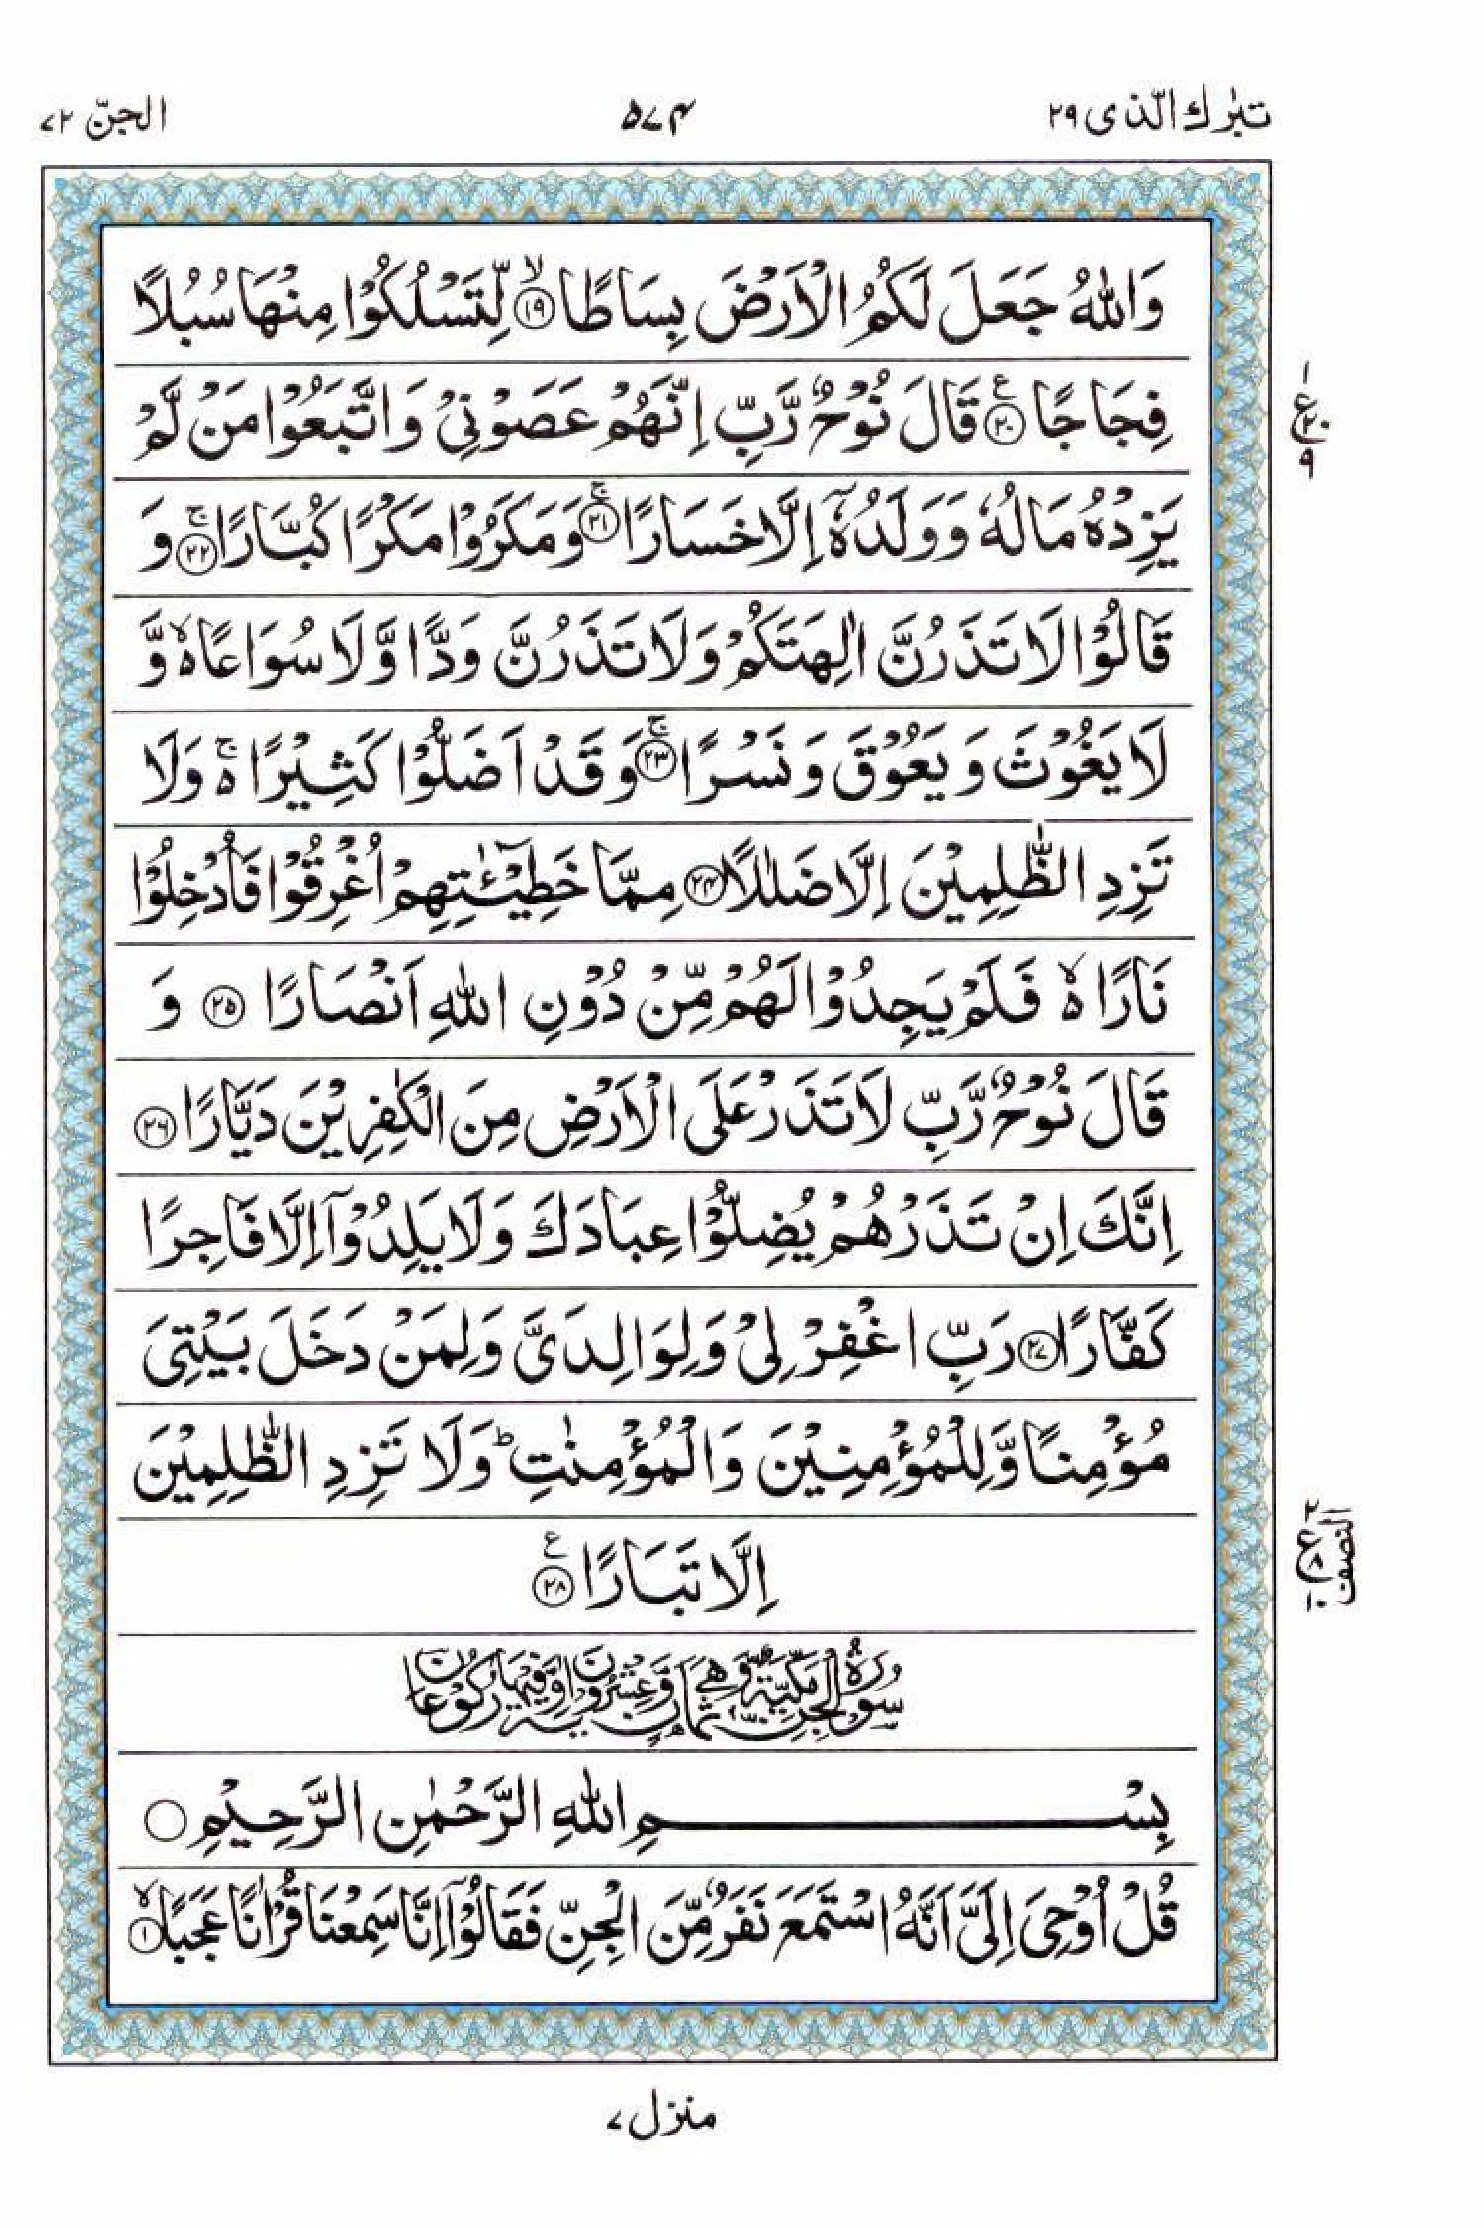 تبٰرك الّذی ۲۹
۵۷۴
الجنّ ۷۲
وَاللّٰهُ جَعَلَ لَكُمُ الْاَرْضَ بِسَاطًا ۙ‏﴿۱۹﴾ لِّتَسْلُكُوْا مِنْهَا سُبُلًا
فِجَاجًا ࣖ‏﴿۲۰﴾ قَالَ نُوْحٌ رَّبِّ اِنَّهُمْ عَصَوْنِیْ وَاتَّبَعُوْا مَنْ لَّمْ
یَزِدْهُ مَالُهٗ وَوَلَدُهٗۤ اِلَّا خَسَارًا ۚ‏﴿۲۱﴾ وَمَكَرُوْا مَكْرًا كُبَّارًا ۚ‏﴿۲۲﴾ وَ
قَالُوْا لَا تَذَرُنَّ اٰلِهَتَكُمْ وَلَا تَذَرُنَّ وَدًّا وَّلَا سُوَاعًا ۙ۬ وَّ
لَا یَغُوْثَ وَیَعُوْقَ وَنَسْرًا ۚ‏﴿۲۳﴾ وَقَدْ اَضَلُّوْا كَثِیْرًا ۚ۬ وَلَا
تَزِدِ الظّٰلِمِیْنَ اِلَّا ضَلٰلًا ﴿۲۴﴾ مِمَّا خَطِیْٓـٰٔتِهِمْ اُغْرِقُوْا فَاُدْخِلُوْا
نَارًا ۙ۬ فَلَمْ یَجِدُوْا لَهُمْ مِّنْ دُوْنِ اللّٰهِ اَنْصَارًا ﴿۲۵﴾ وَ
قَالَ نُوْحٌ رَّبِّ لَا تَذَرْ عَلَی الْاَرْضِ مِنَ الْكٰفِرِیْنَ دَیَّارًا ﴿۲۶﴾
اِنَّكَ اِنْ تَذَرْهُمْ یُضِلُّوْا عِبَادَكَ وَلَا یَلِدُوْۤا اِلَّا فَاجِرًا
كَفَّارًا ﴿۲۷﴾ رَبِّ اغْفِرْ لِیْ وَلِوَالِدَیَّ وَلِمَنْ دَخَلَ بَیْتِیَ
مُؤْمِنًا وَّلِلْمُؤْمِنِیْنَ وَالْمُؤْمِنٰتِ ؕ وَلَا تَزِدِ الظّٰلِمِیْنَ
اِلَّا تَبَارًا ࣖ‏﴿۲۸﴾
سُوْرَةُ الْجِنِّ مَكِّیَّةٌ وَّهِیَ ثَمَانٌ وَّعِشْرُوْنَ اٰیَةً وَّفِیْهَا رُكُوْعَانِ
بِسْمِ اللّٰهِ الرَّحْمٰنِ الرَّحِیْمِ ○
قُلْ اُوْحِیَ اِلَیَّ اَنَّهُ اسْتَمَعَ نَفَرٌ مِّنَ الْجِنِّ فَقَالُوْۤا اِنَّا سَمِعْنَا قُرْاٰنًا عَجَبًا ۙ‏﴿۱﴾
۱
ع
۲۰
۹
۲
ع
۸
۱۰
النصف
منزل ۷